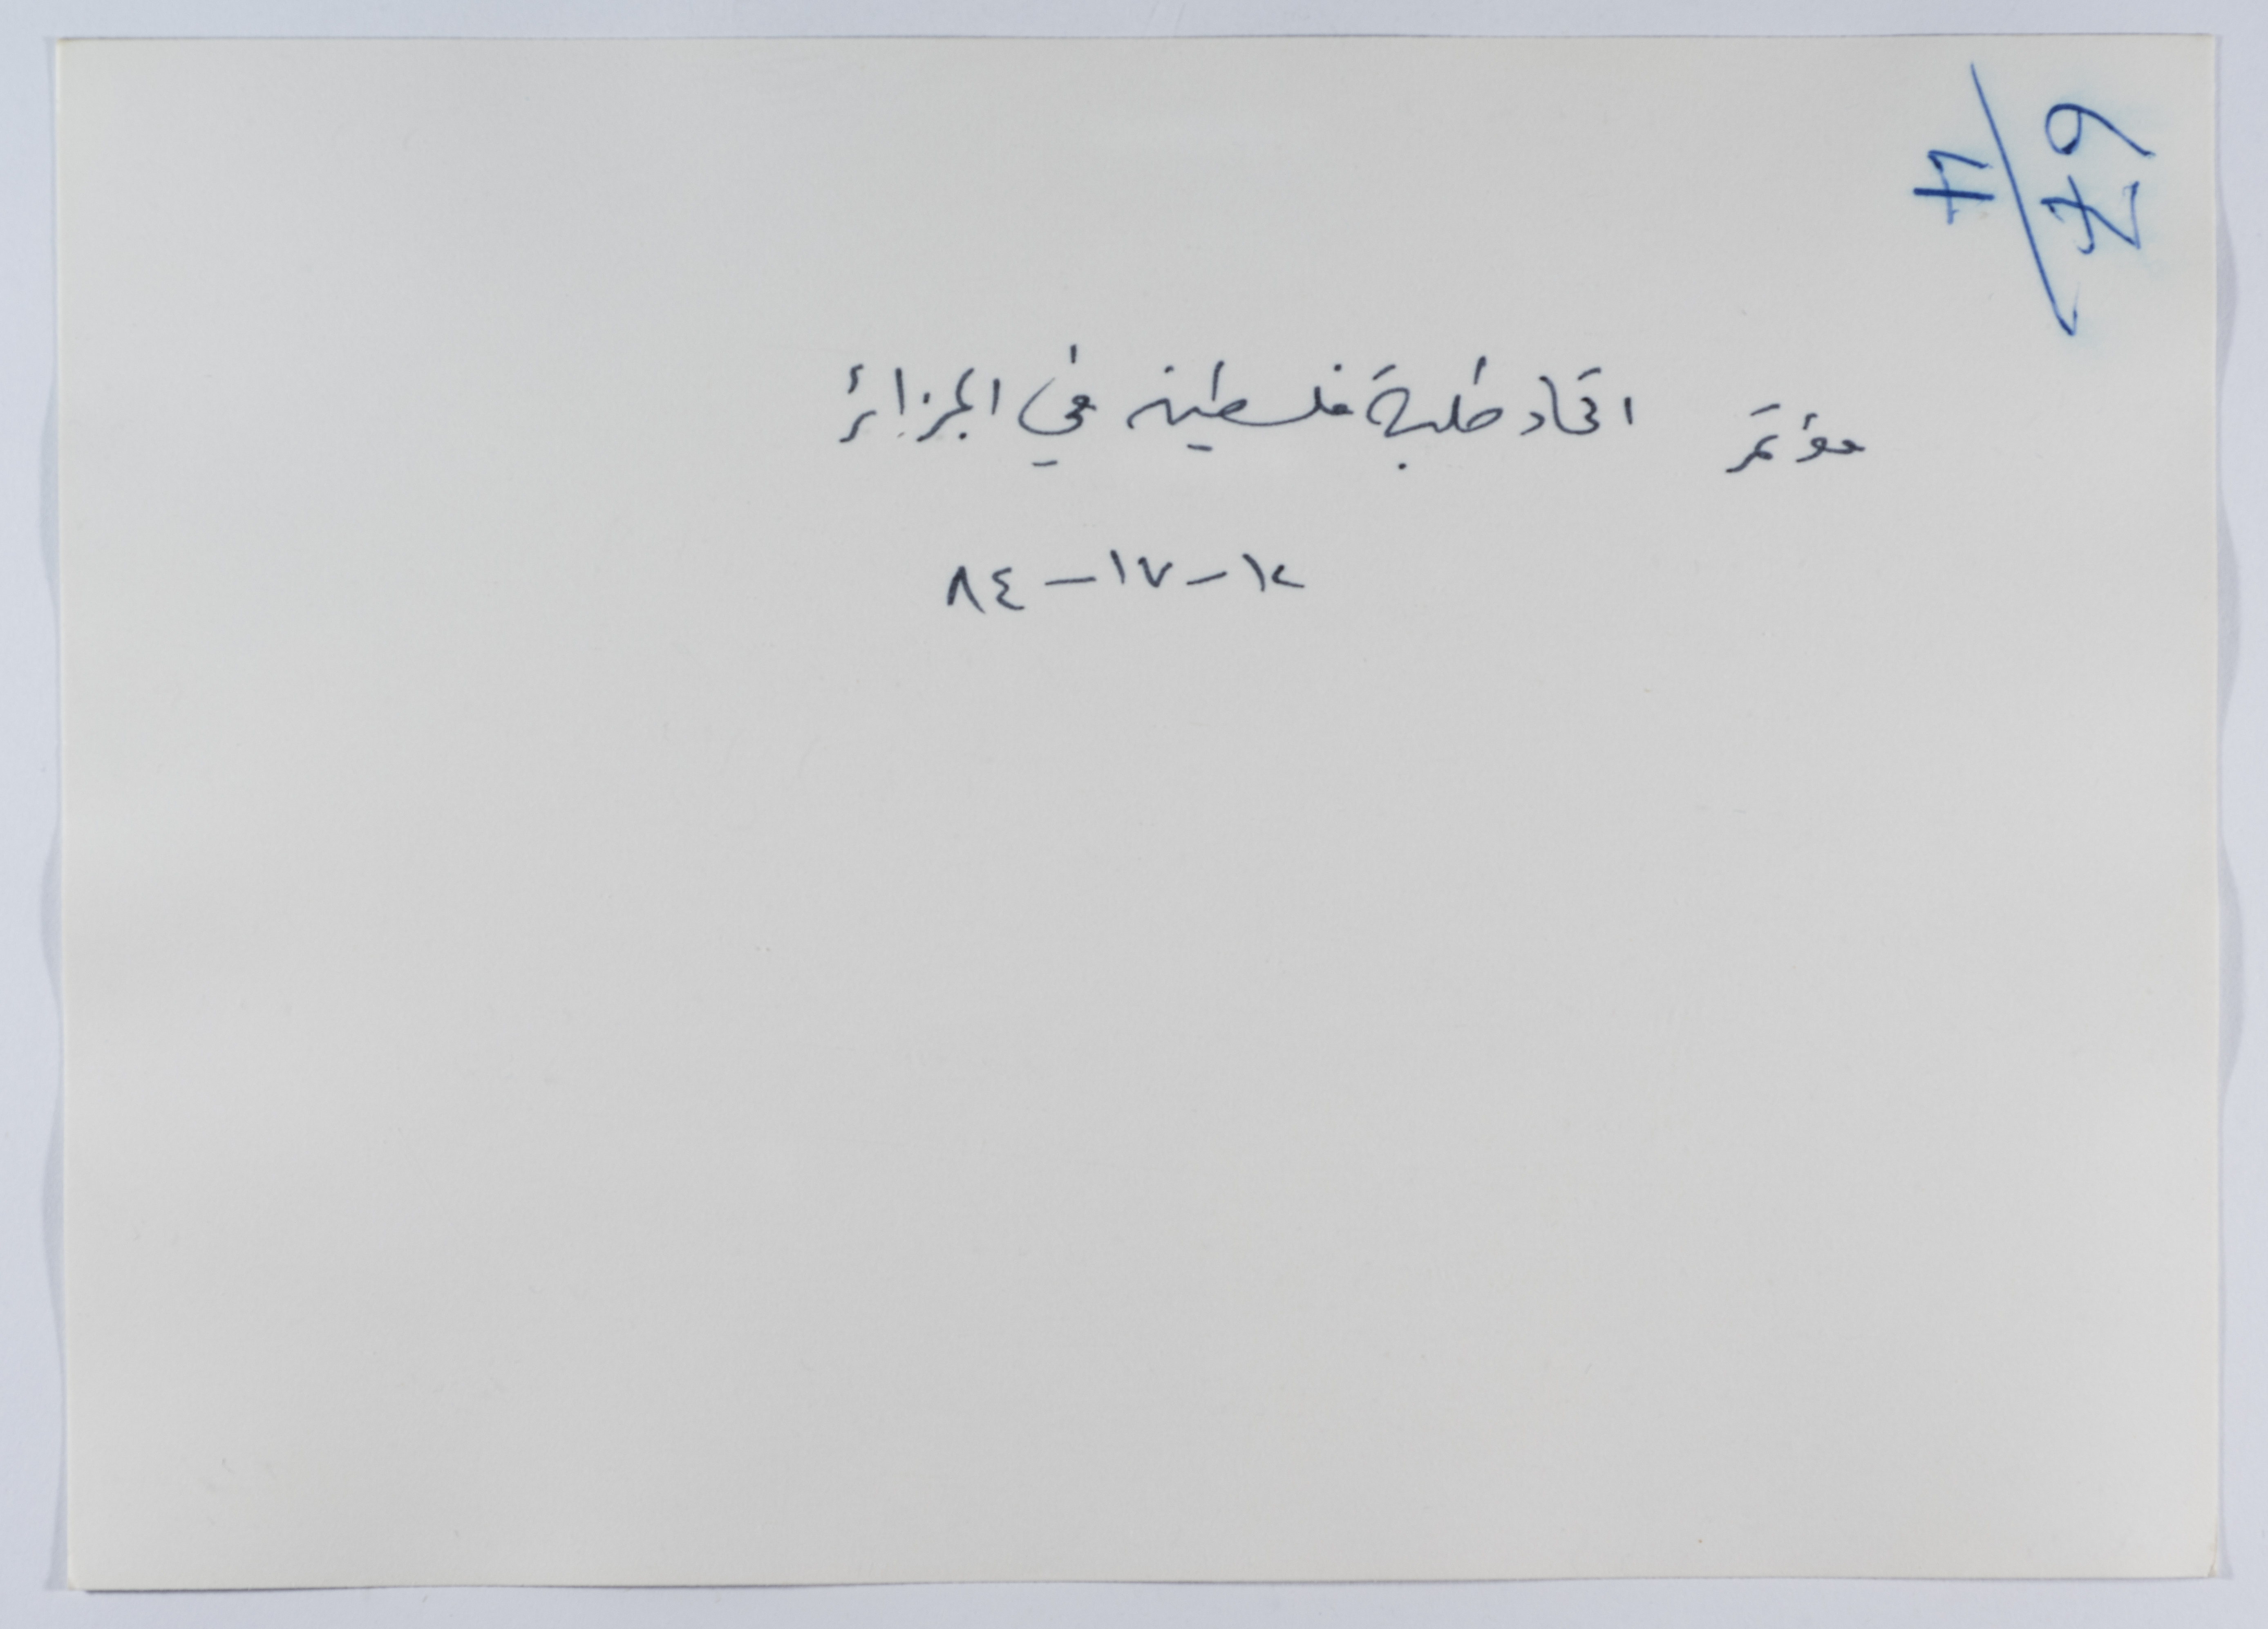 67/4
مؤتمر اتحاد طلبة فلسطين في الجزائر
٨٤ – ١٧ – ١٢